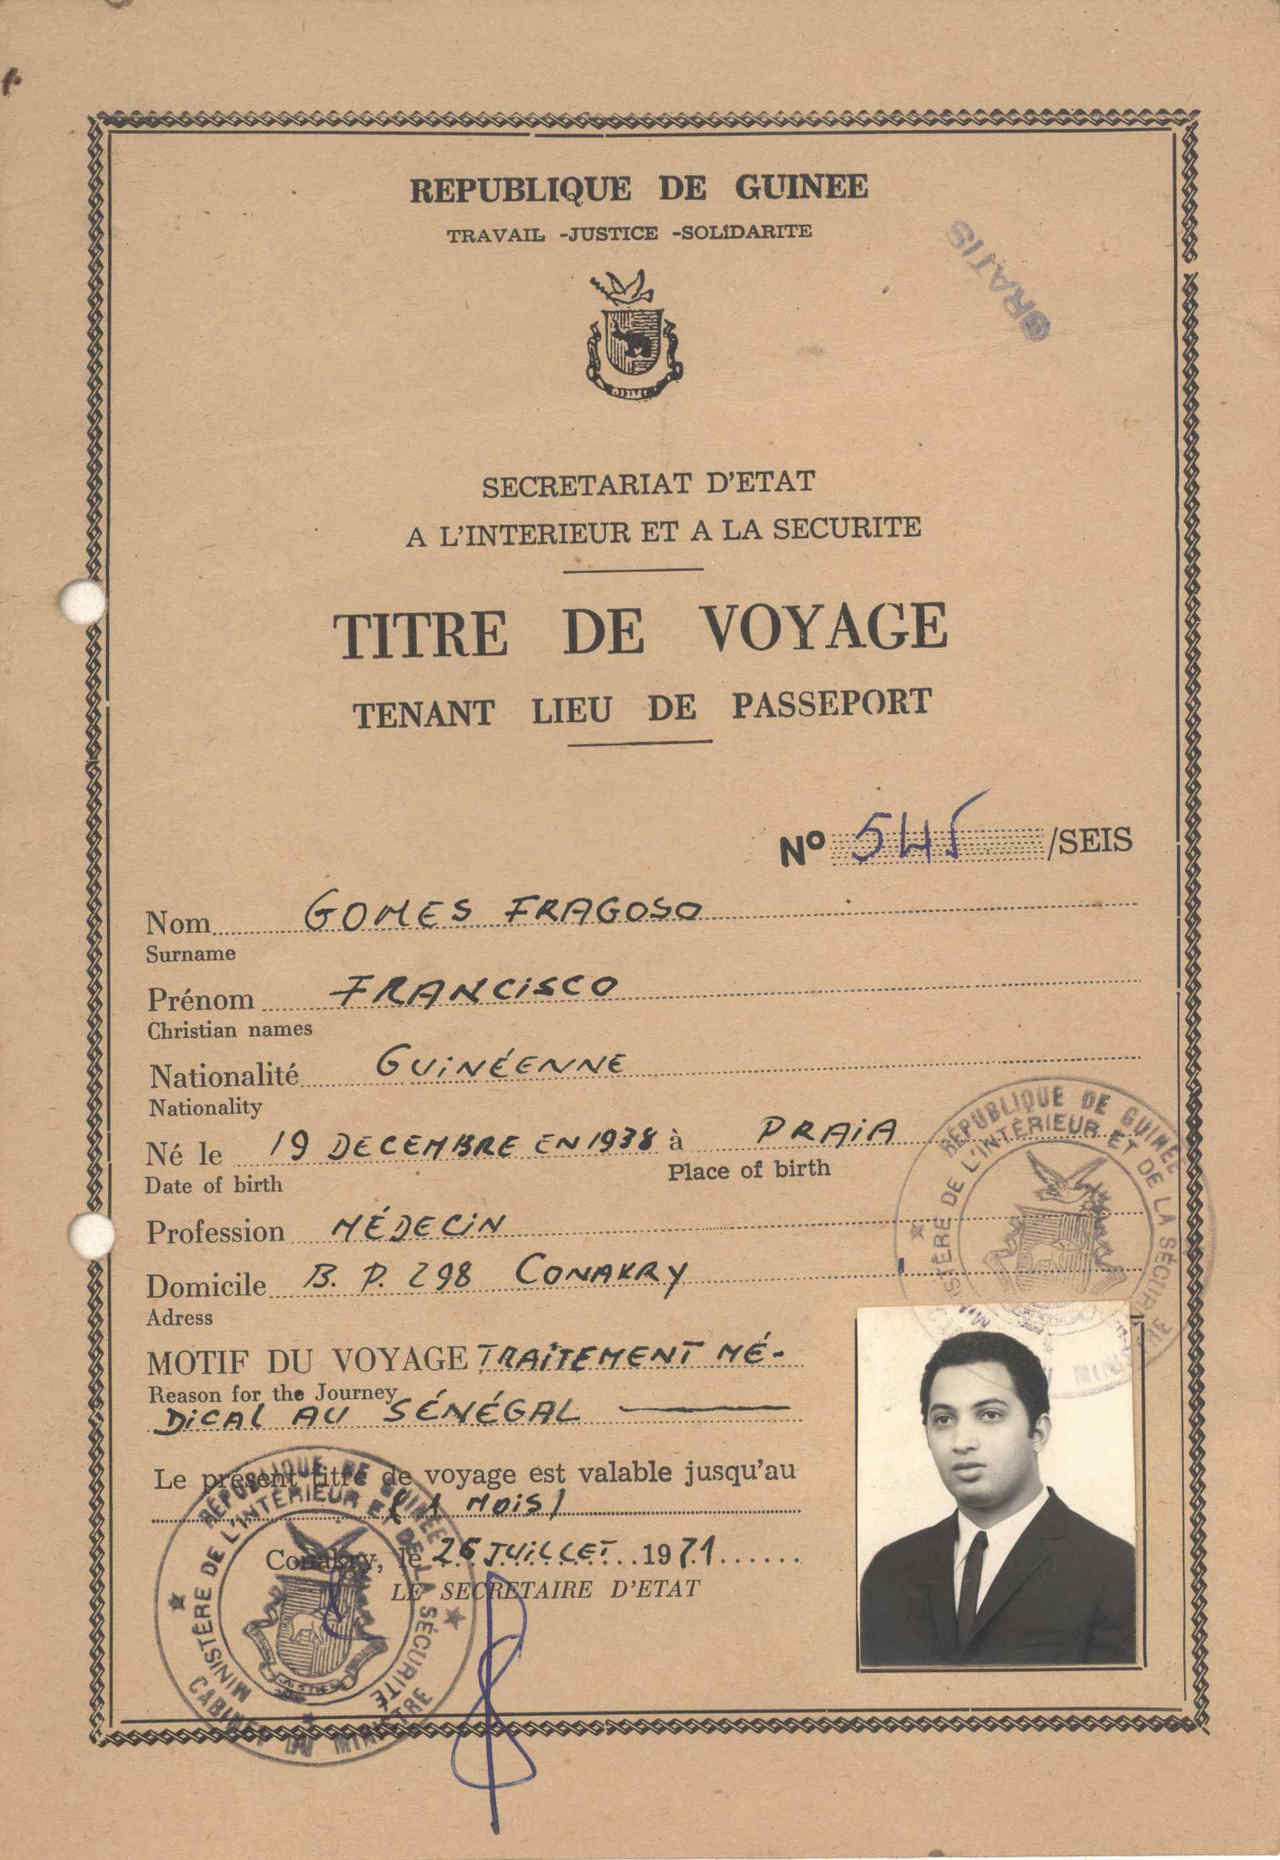 REPUBLIQUE DE GUINEE
TRAVAIL -JUSTICE -SOLIDARITE
GRATIS
SECRETARIAT D'ETAT
A L'INTERIEUR ET A LA SECURITE
TITRE DE VOYAGE
TENANT LIEU DE PASSEPORT
Nº 545 /SEIS
Nom GOMES FRAGOSO
Surname
Prénom FRANCISCO
Christian names
Nationalité GUINÉENNE
Nationality
Né le 19 DECEMBRE EN 1938 à PRAIA
Date of birth Place of birth
Profession MÉDECIN
Domicile B. P. 298 CONAKRY
Adress
MOTIF DU VOYAGE TRAITEMENT MÉ-
Reason for the Journey
DICAL AU SÉNÉGAL
Le présent titre de voyage est valable jusqu'au
(1 MOIS)
Conakry, le 26 JUILLET 1971
LE SECRETAIRE D'ETAT
REPUBLIQUE DE GUINEE
MINISTÈRE DE L'INTÉRIEUR ET DE LA SÉCURITÉ
CABINET DU MINISTRE
REPUBLIQUE DE GUINEE
DE L'INTÉRIEUR ET DE LA SÉCURITÉ